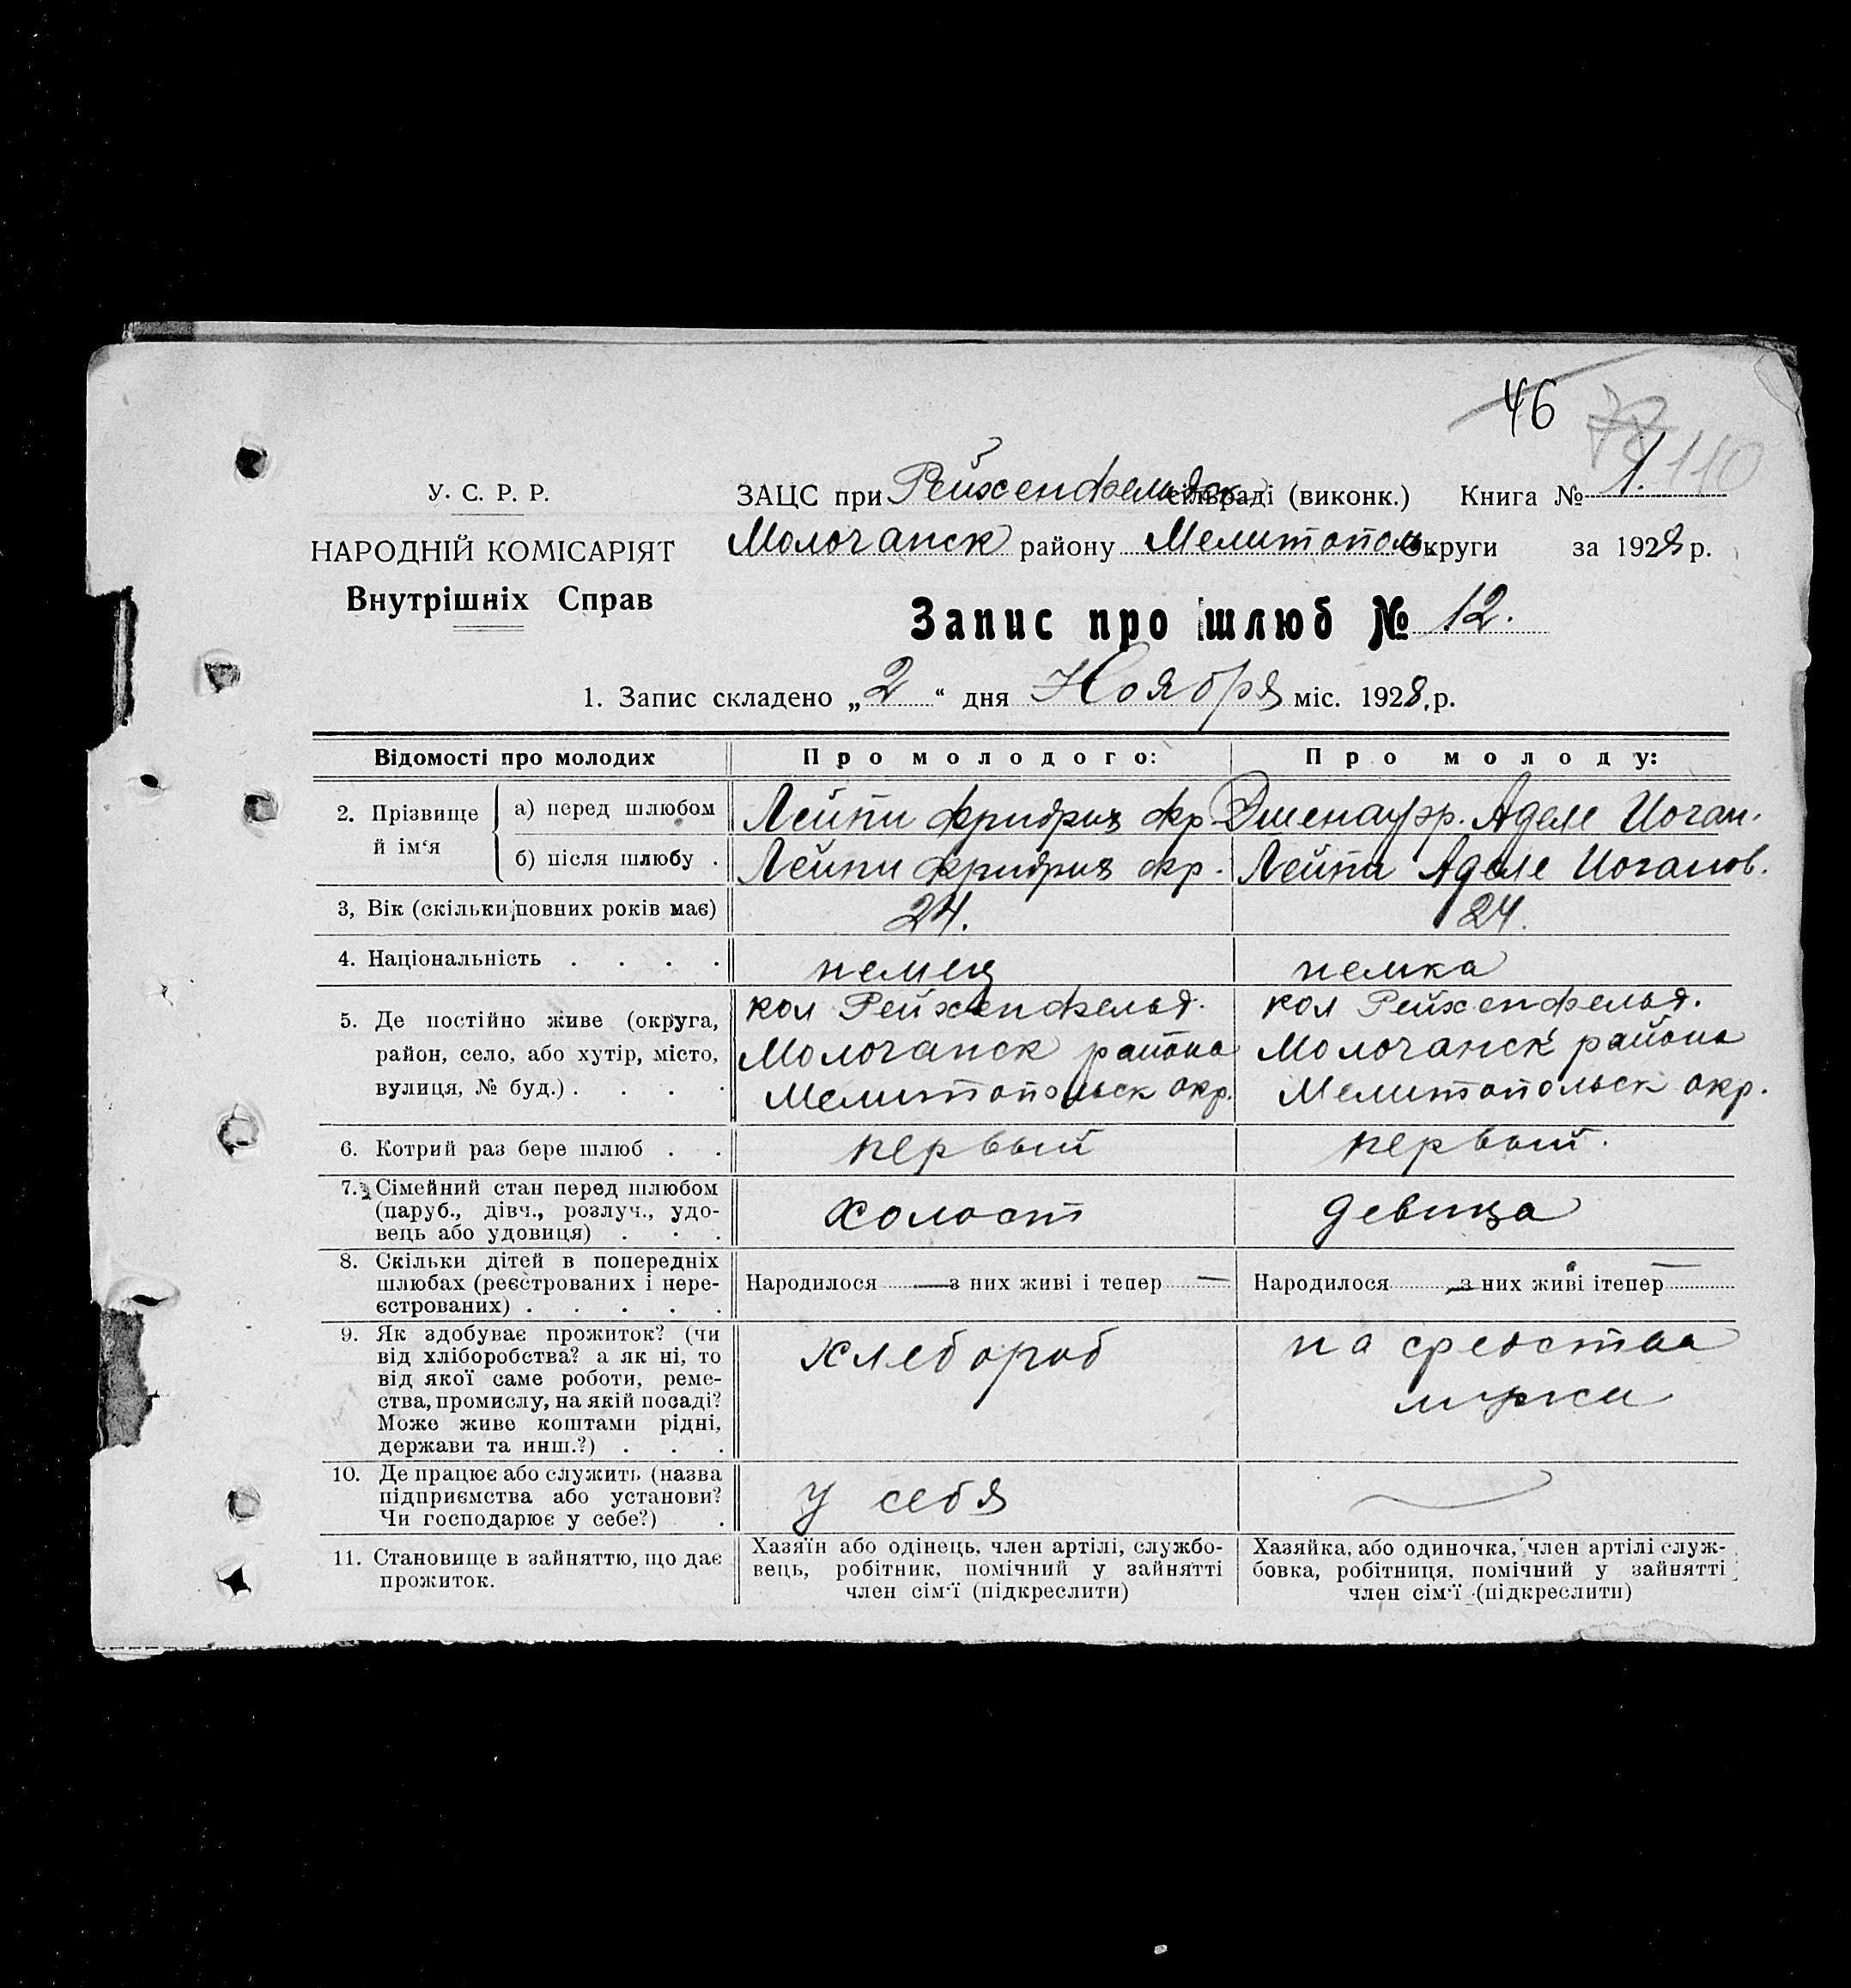 46
78 110
У. С. Р. Р.
НАРОДНІЙ КОМІСАРІЯТ
Внутрішніх Справ
ЗАЦС при Рейхенфельдск сільраді (виконк.) Книга № 1.
Молочанск району Мелитополь округи за 1928 р.
Запис про шлюб № 12.
1. Запис складено „2“ дня Ноября міс. 1928, р.
Відомості про молодих
Про молодого:
Про молоду:
2. Прізвище й ім‘я
а) перед шлюбом
Лейпи Фридрих Фр.
Эшенауэр. Аделе Иоган.
б) після шлюбу .
Лейпи Фридрих Фр.
Лейпи Аделе Иоганов.
3, Вік (скільки повних років має)
24.
24.
4. Національність . . . .
немец
немка
5. Де постійно живе (округа,
район, село, або хутір, місто,
вулиця, № буд.) . . . .
кол Рейхенфельд.
Молочанск района
Мелитопольск окр.
кол Рейхенфельд.
Молочанск района
Мелитопольск окр.
6. Котрий раз бере шлюб . .
первый
первый.
7. Сімейний стан перед шлюбом
(паруб., дівч., розлуч., удо-
вець або удовиця) . . .
холост
девица
8. Скільки дітей в попередніх
шлюбах (реєстрованих і нере-
єстрованих) . . . . .
Народилося — з них живі і тепер —
Народилося — з них живі ітепер —
9. Як здобуває прожиток? (чи
від хліборобства? а як ні, то
від якої саме роботи, реме-
ства, промислу, на якій посаді?
Може живе коштами рідні,
держави та инш.?) . . .
хлебороб
на средства
мужа
10. Де працює або служить (назва
підприємства або установи?
Чи господарює у себе?) .
у себя
11. Становище в зайняттю, що дає
прожиток.
Хазяїн або одінець, член артілі, службо-
вець, робітник, помічний у зайнятті
член сім‘ї (підкреслити)
Хазяйка, або одиночка, член артілі служ-
бовка, робітниця, помічний у зайнятті
член сім‘ї (підкреслити)